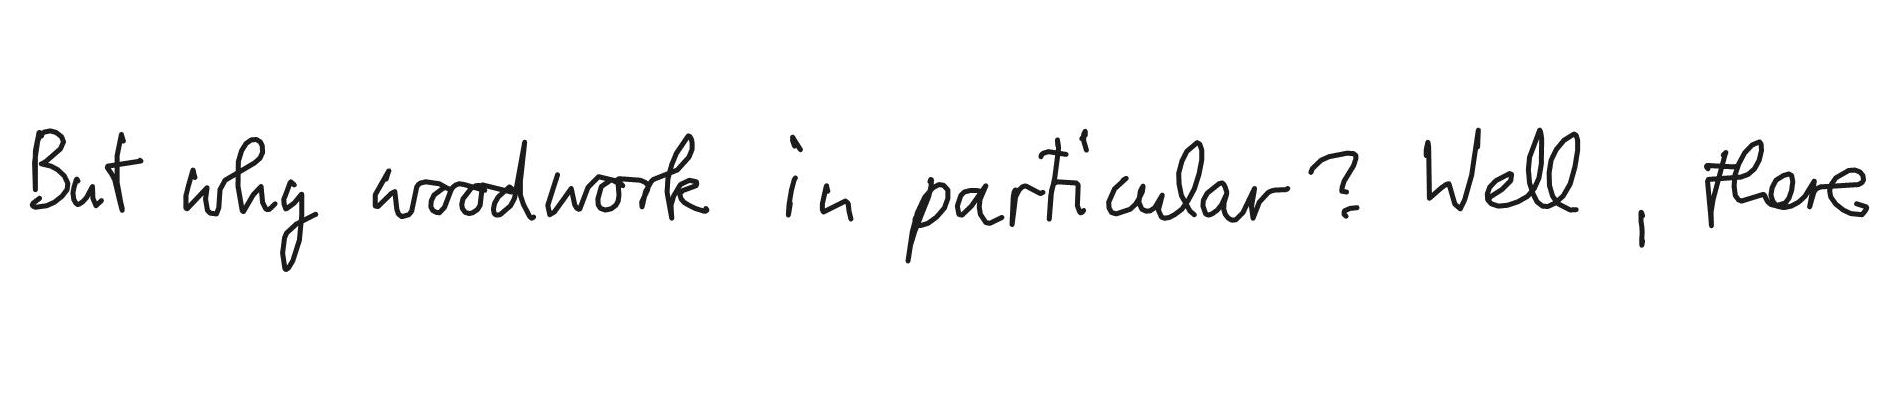 But why woodwork in particular? Well, there